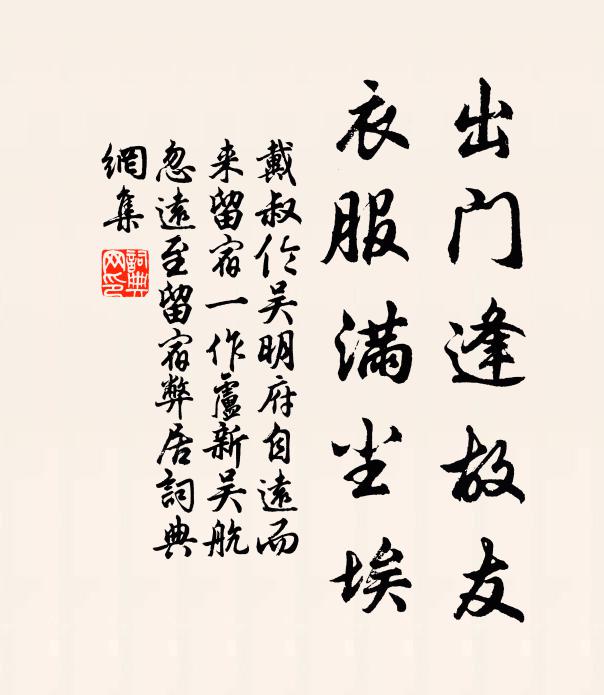 出门逢故友
衣服滿尘埃
戴叔伦吴明府自遠而
来留宿一作盧新吴航
忽遠至留宿弊居詞典
網集
詞典
网印